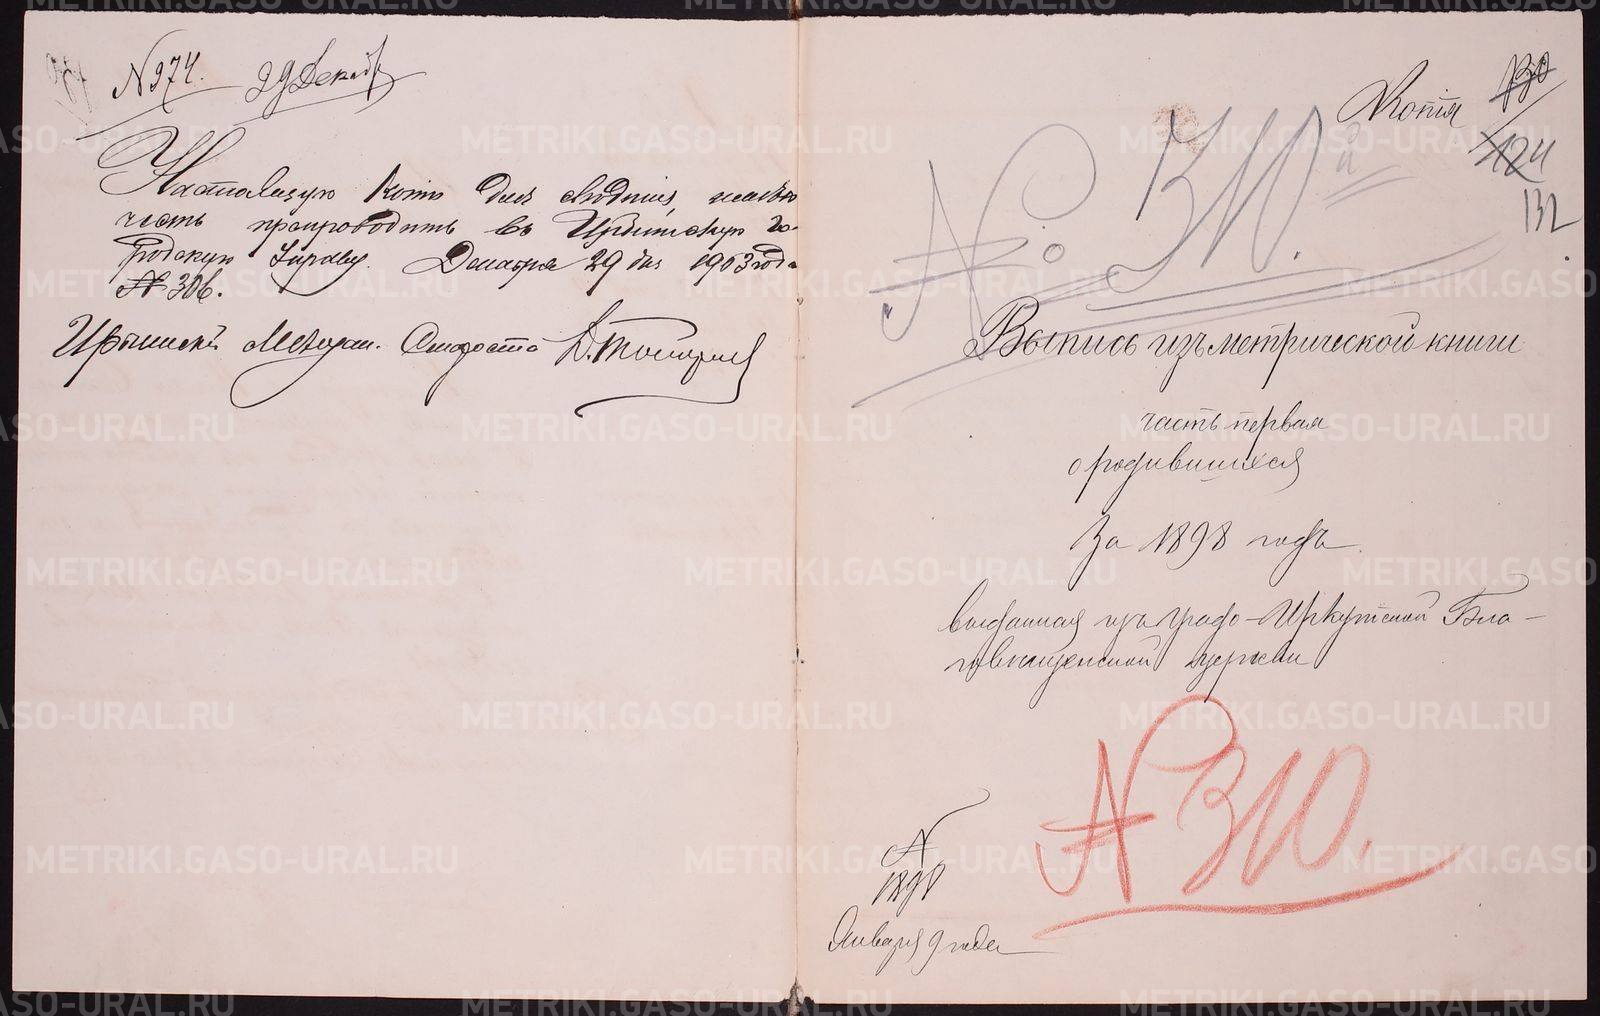 № 974. 29 Декаб
Настоящую Копію для свѣдѣнія, имѣю
честь препроводить въ Ирбитскую Го-
родскую Управу. Декабря 29 дня 1903 года
№ 306.
Ирбитскій Мѣщан. Староста
Копія
130
124
132
№ 310.й
Выпись изъ метрической книги
часть первая
о родившихся
За 1898 годъ
выданная изъ градо-Иркутской Бла-
говѣщенской церкви
№ 310.
№
1898
Января 9 года
METRIKI.GASO-URAL.RU